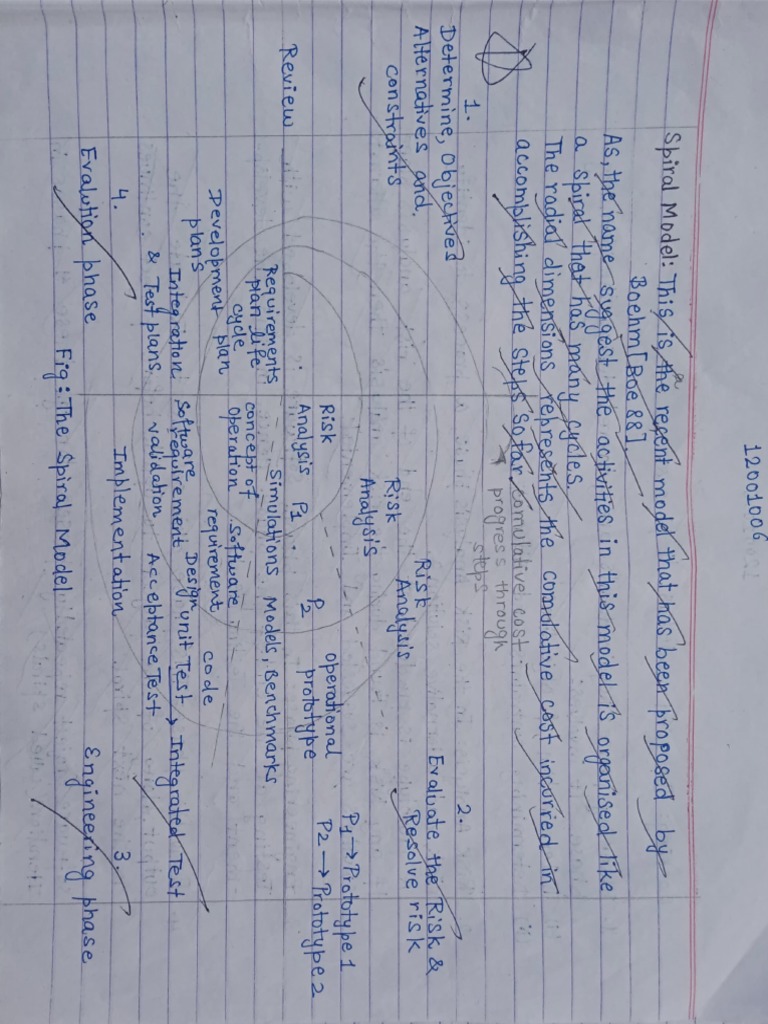 12001006
Spiral Model: This is a the recent model that has been proposed by
Boehm [Boe 88].
As, the name suggest the activities in this model is organised like
a spiral that has many cycles.
The radial dimensions represents the comulative cost incurred in
accomplishing the steps so far comulative cost
progress through
steps
1.
Determine, Objectives
Alternatives and
constraints
2.
Evaluate the Risk &
Resolve risk
Risk
Analysis
Risk
Analysis
Risk
Analysis
P1
P2
operational
prototype
P1 → Prototype 1
P2 → Prototype 2
Review
Requirements
plan life
cycle
Simulations Models, Benchmarks
concept of
operation
Development
plans
plan
Software
requirement
code
Integration
& Test plans
Software
requirement
validation
Design
unit Test → Integrated Test
Acceptance Test
4.
Implementation
3.
Evalution phase
Engineering phase
Fig: The Spiral Model